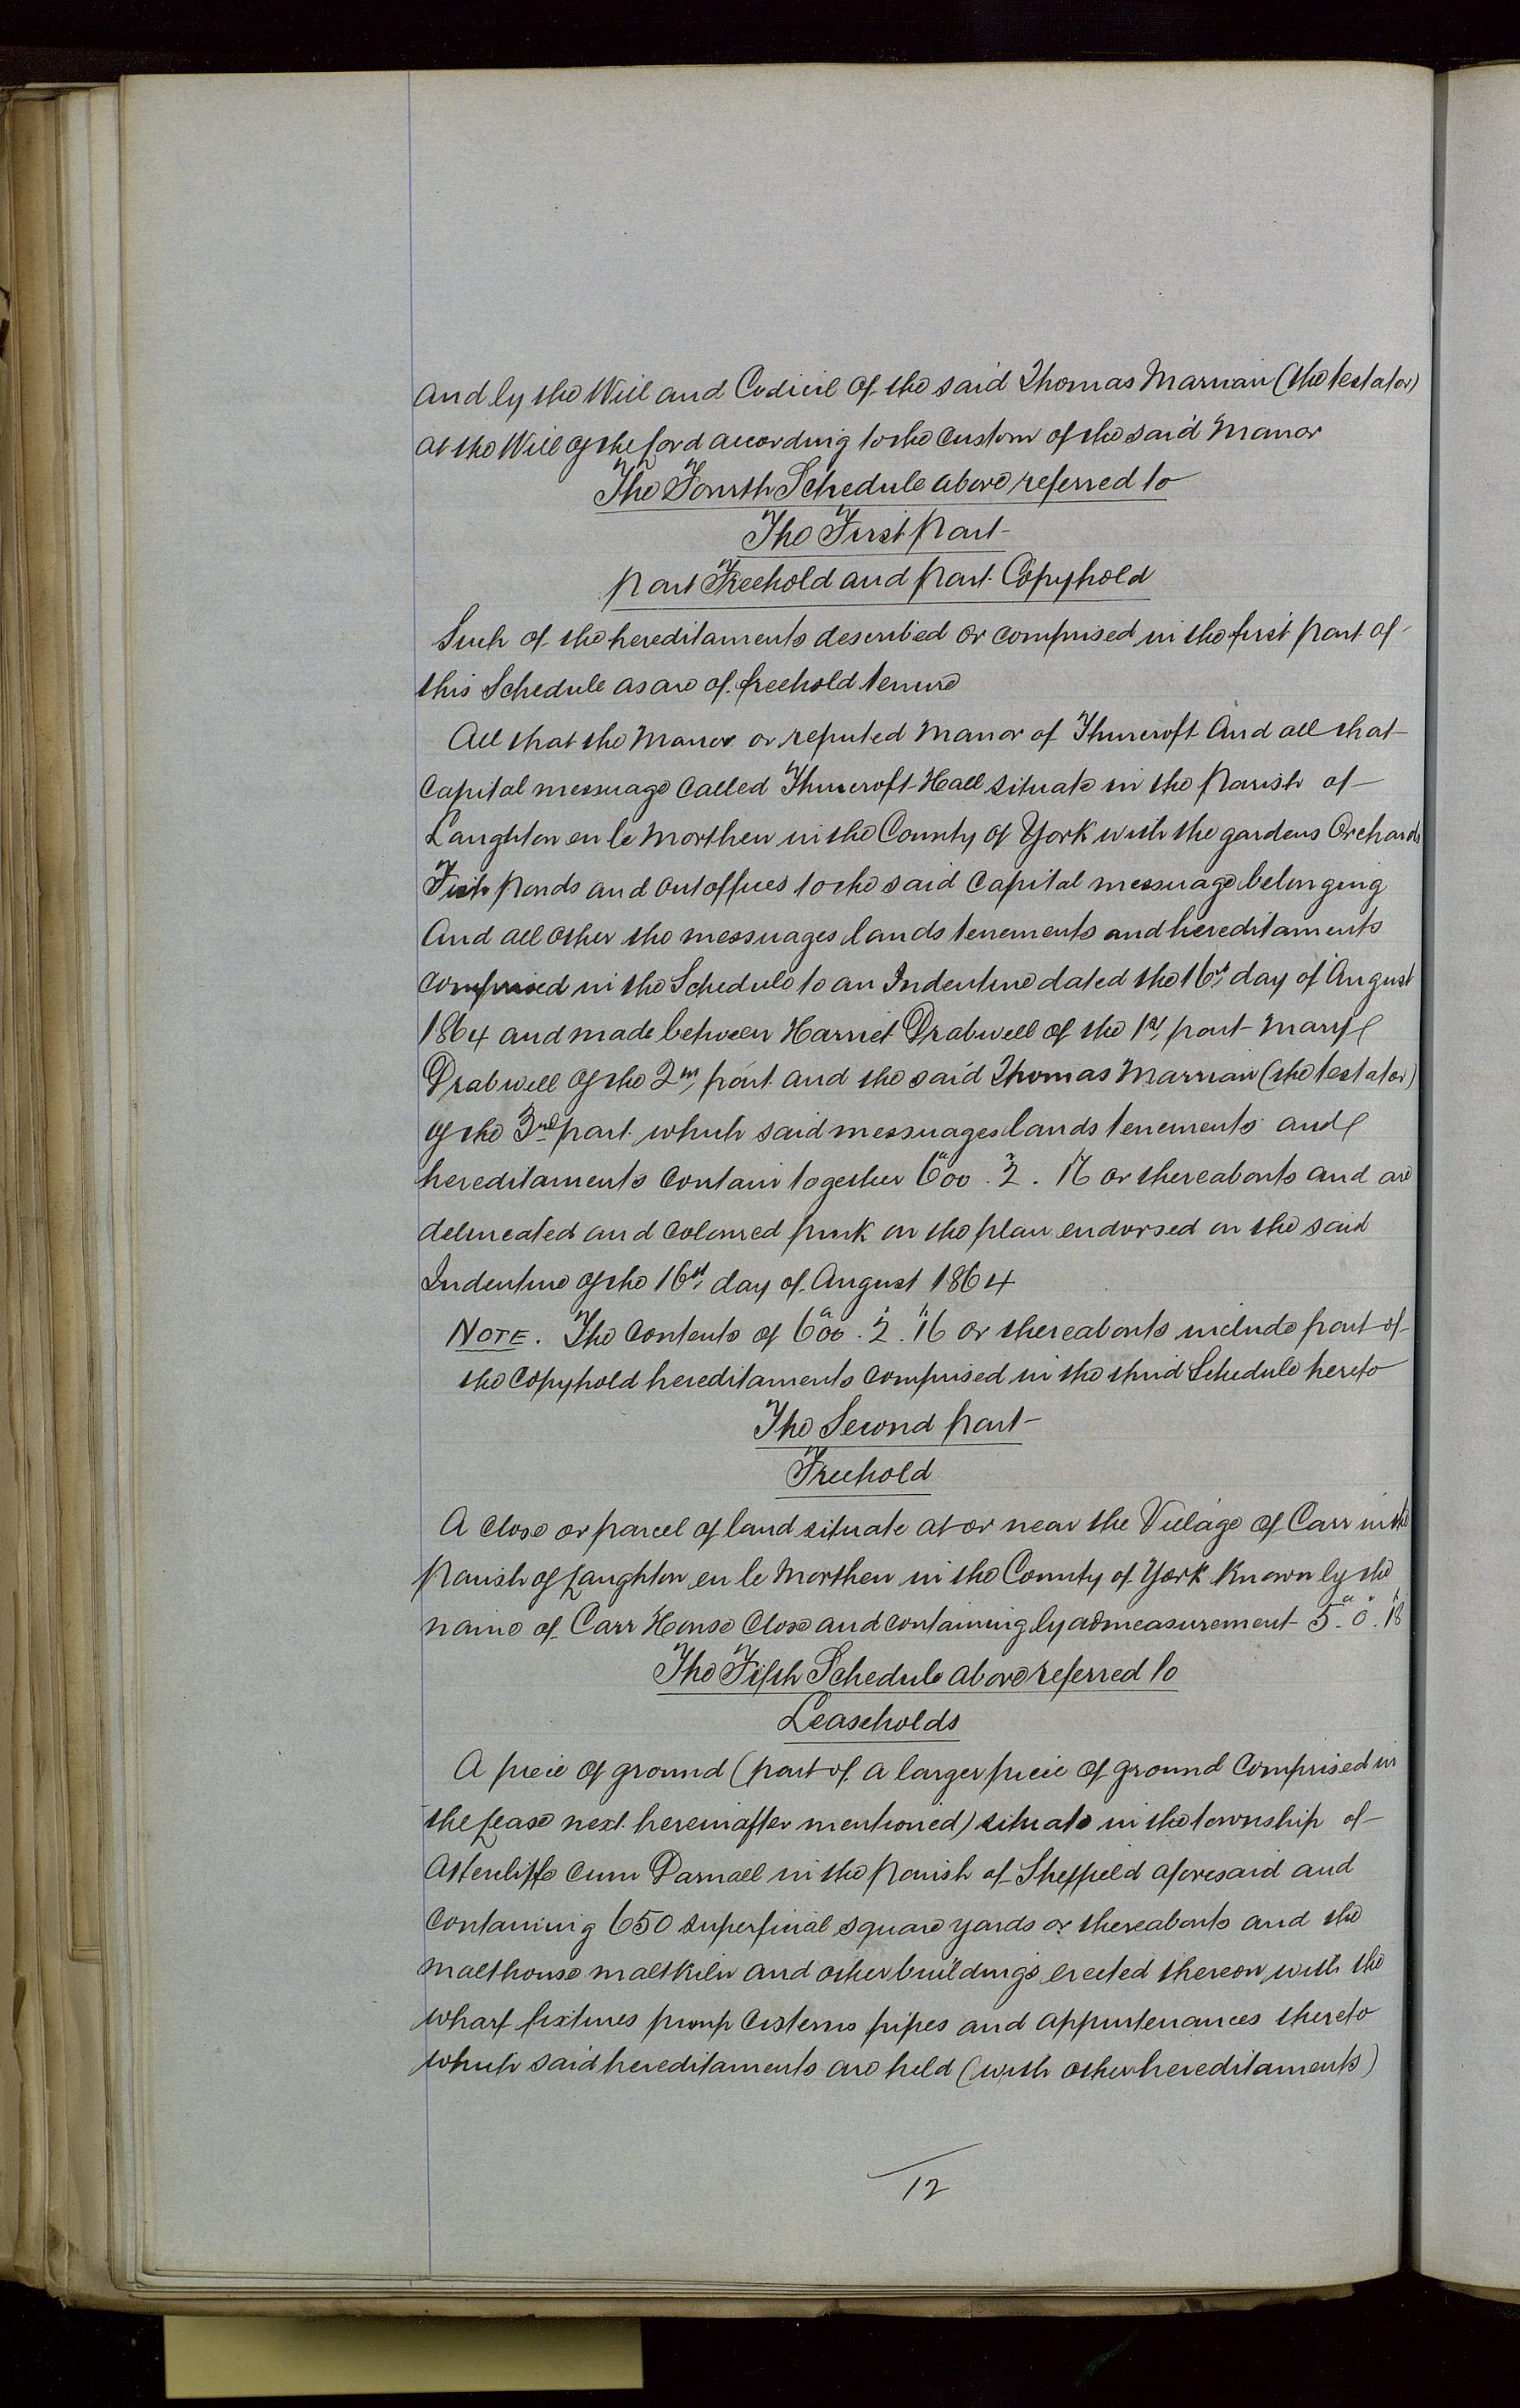 and by the Will and Codicil of the said Thomas Marrian (the testator)
at the Will of the Lord according to the custom of the said Manor
The Fourth Schedule above referred to
The First Part
Part Freehold and Part Copyhold
Such of the hereditaments described or comprised in the first part of
this Schedule as are of freehold tenure
All that the Manor or reputed Manor of Thurcroft And all that
Capital messuage called Thurcroft Hall situate in the Parish of
Laughton en le Morthen in the County of York with the gardens Orchards
Fish Ponds and outoffices to the said Capital messuage belonging
And all other the messuages lands tenements and hereditaments
comprised in the Schedule to an Indenture dated the 16th day of August
1864 and made between Harriet Drabwell of the 1st part Mary
Drabwell of the 2nd part and the said Thomas Marrian (the testator)
of the 3rd part which said messuages lands tenements and
hereditaments contain together 600a. 2r. 16p or thereabouts and are
delineated and coloured pink on the plan endorsed on the said
Indenture of the 16th day of August 1864
NOTE. The contents of 600a. 2r. 16p or thereabouts include part of
the Copyhold hereditaments comprised in the third Schedule hereto
The Second Part
Freehold
A close or parcel of land situate at or near the Village of Carr in the
Parish of Laughton en le Morthen in the County of York known by the
name of Carr House Close and containing by admeasurement 5a. 0r. 18p
The Fifth Schedule above referred to
Leaseholds
A piece of ground (part of a larger piece of ground comprised in
the Lease next hereinafter mentioned) situate in the township of
Attercliffe cum Darnall in the Parish of Sheffield aforesaid and
containing 650 superficial square yards or thereabouts and the
malthouse maltkiln and other buildings erected thereon with the
wharf fixtures pump cisterns pipes and appurtenances thereto
which said hereditaments are held (with other hereditaments)
12